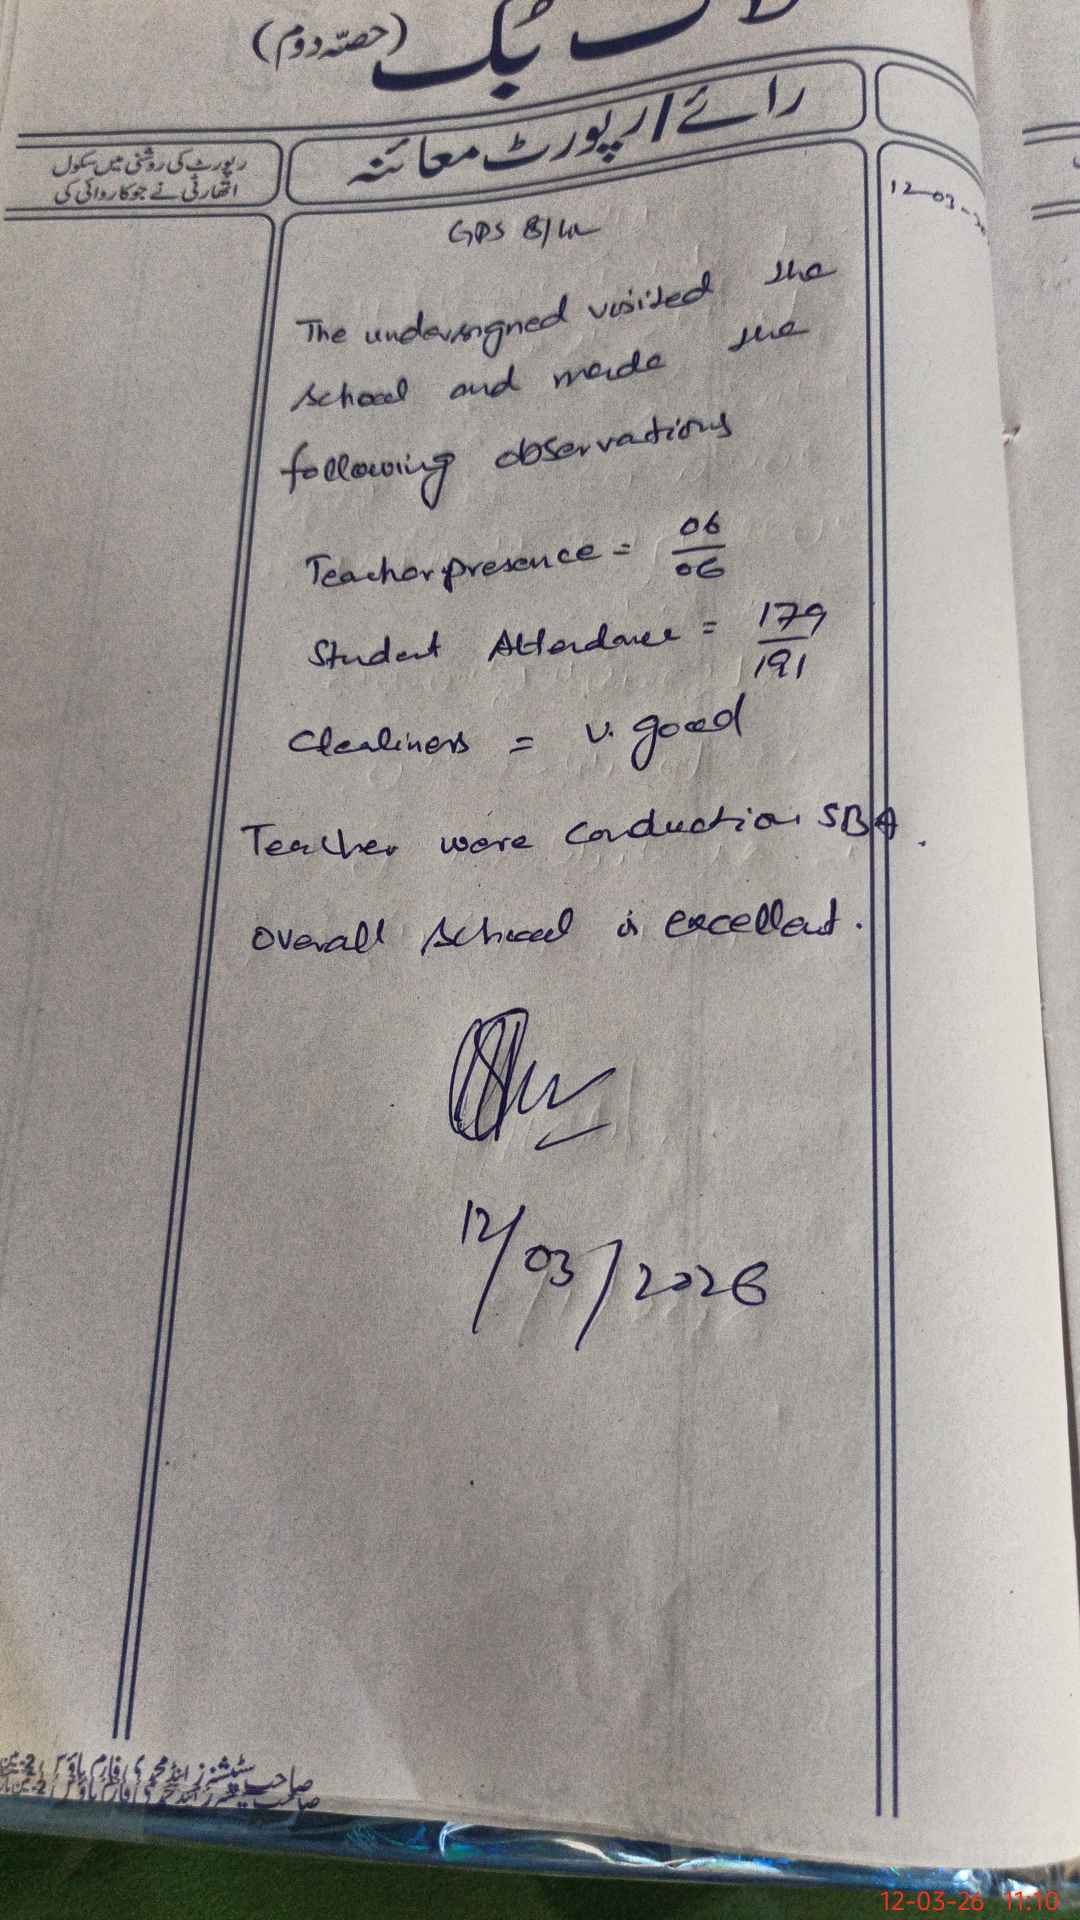 بُک (حصّہ دوم)
رائے / رپورٹ معائنہ
رپورٹ کی روشنی میں سکول
اتھارٹی نے جو کاروائی کی
12-03-
GPS 8/4L
The undersigned visited the
school and made the
following observations
Teacher presence = 06/06
Student Attendance = 179/191
Clealiness = v. good
Teacher were conduction SBA.
overall school is excellent.
12/03/2026
12-03-26 11:10